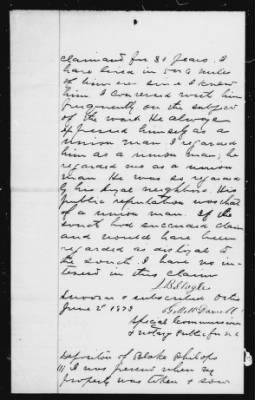 claimant for 30 years. I
have lived in 1/2 a mile
of him ever since I knew
him I conversed with him
frequently on the subject
of the war. He always
expressed himself as a
union man I regarded
him as a union man, he
regarded me as a union
man. He was so regarded
by his loyal neighbors. His
public reputation was that
of a union man. If the
south had succeeded claimant
would have been
regarded as disloyal to
the South. I have no in-
terest in this claim
Sworn & subscribed
June 2d 1873
Special Commissioner
& Notary Public for
Deposition of Blake Philips
I was present when
property was taken & saw